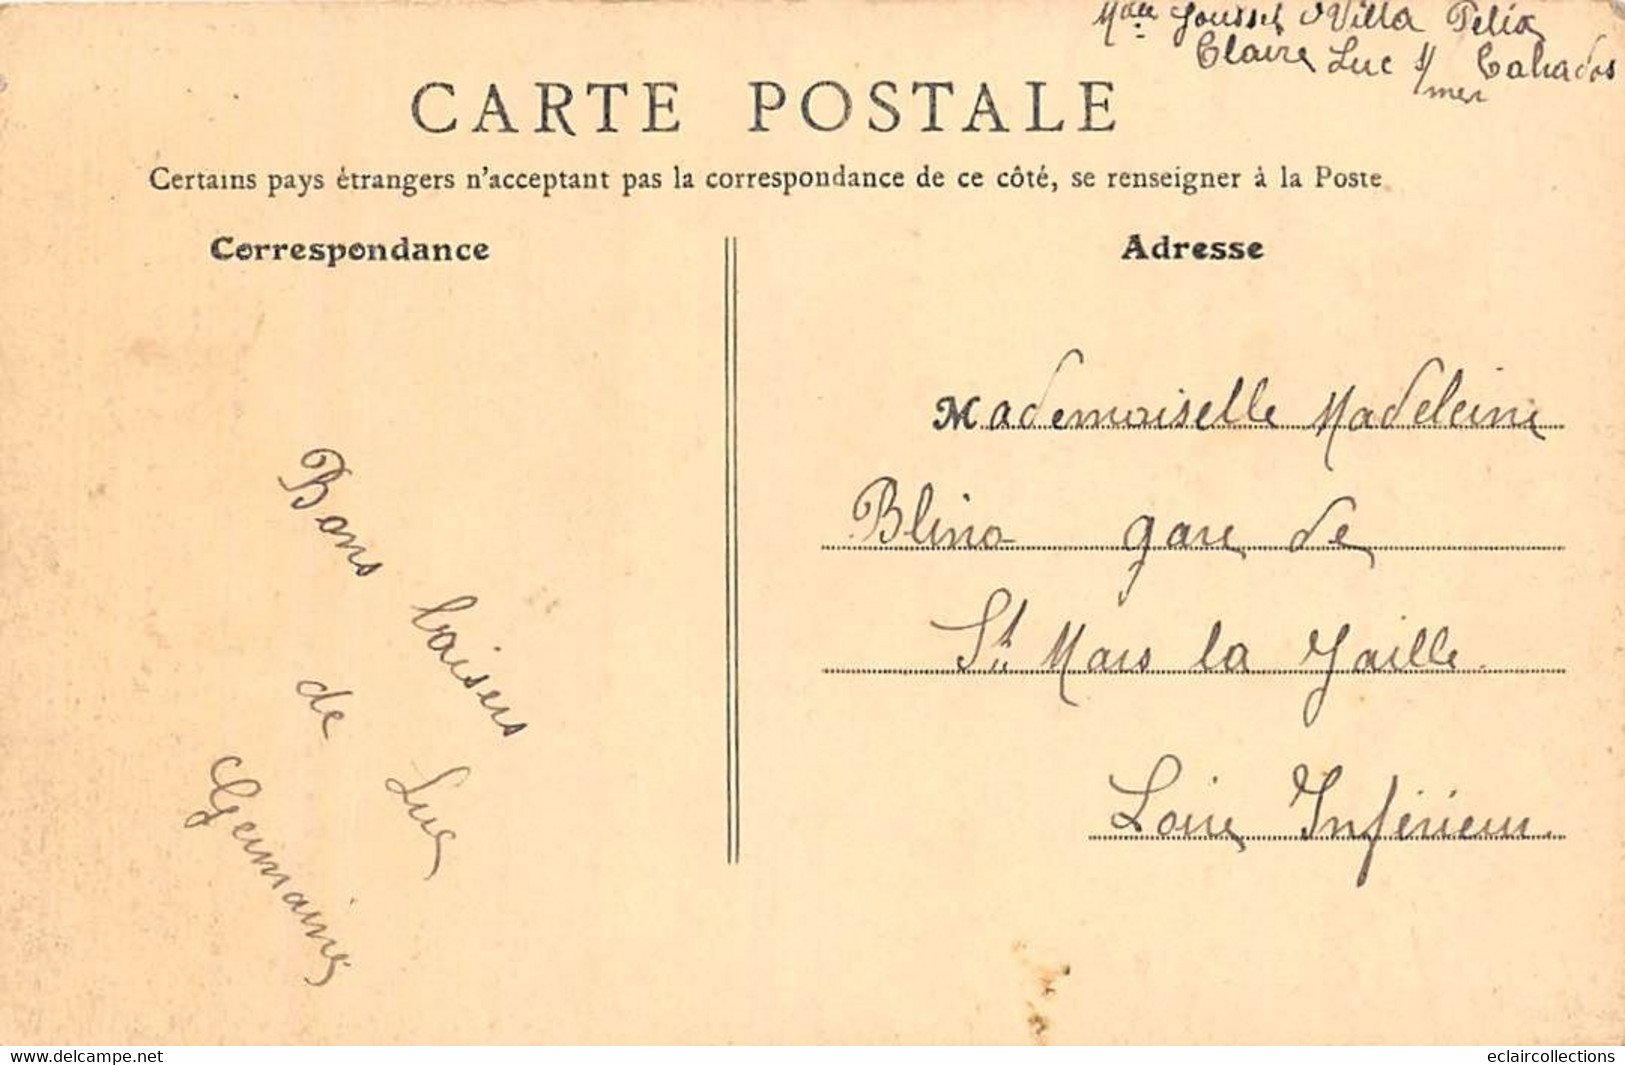 Mdelle Jousset Villa Félix
Claire Luc s/mer Calvados
CARTE POSTALE
Certains pays étrangers n'acceptant pas la correspondance de ce côté, se renseigner à la Poste
Correspondance
Adresse
Mademoiselle Madeleine
Blino gare de
St Mars la Jaille
Loire Inférieur
Bons baisers
de Luc
Germaine
www.delcampe.net
eclaircollections